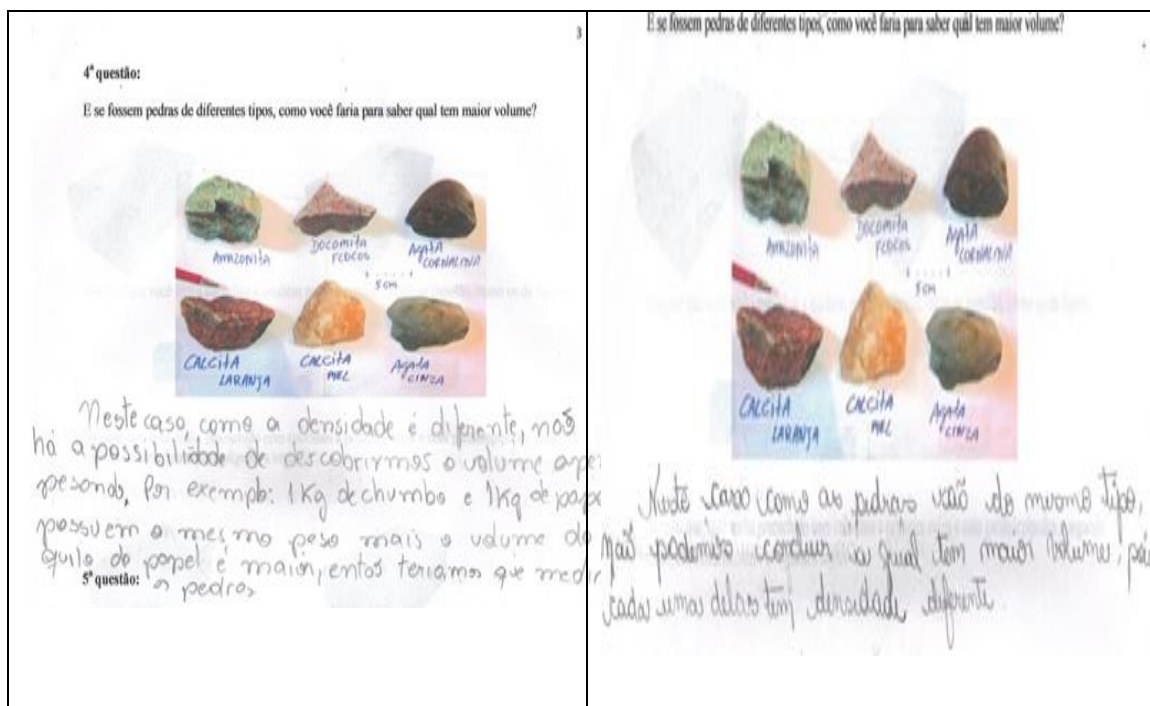 3
4ª questão:
E se fossem pedras de diferentes tipos, como você faria para saber qual tem maior volume?
AMAZONITA
DOCOMITA
FLOCOS
AGATA
CORNALINA
5 cm
CALCITA
LARANJA
CALCITA
MEL
AGATA
CINZA
Neste caso, como a densidade é diferente, nos
há a possibilidade de descobrirmos o volume ape
pesando, Por exemplo: 1Kg de chumbo e 1Kg de pape
possuem o mesmo peso mais o volume do
quilo do papel é maior, entos teriamos que medir
5ª questão:
as pedras
E se fossem pedras de diferentes tipos, como você faria para saber qual tem maior volume?
AMAZONITA
DOCOMITA
FLOCOS
AGATA
CORNALINA
5 cm
CALCITA
LARANJA
CALCITA
MEL
AGATA
CINZA
Neste caso, como as pedras do mesmo tipo,
não podemos qual tem maior volume,
cada uma delas tem densidade diferente.